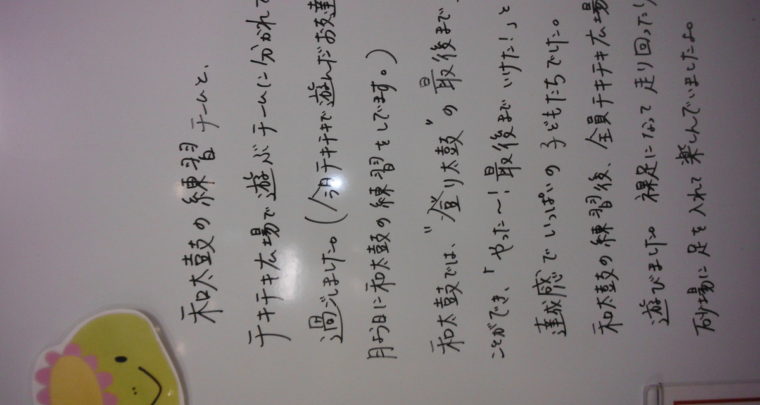 和太鼓の練習チームと、
テキテキ広場で遊ぶチームに分かれて
過ごしました。(今日テキテキで遊んだお友達
月よう日に和太鼓の練習をしてます。)
和太鼓では、"登り太鼓"の最後まで
ことができ、「やった〜!最後までいけた!」と
達成感でいっぱいの子どもたちでした。
和太鼓の練習後、全員テキテキ広場
遊びました。裸足になって走り回ったり
砂場に足を入れて楽しんでいましたよ。